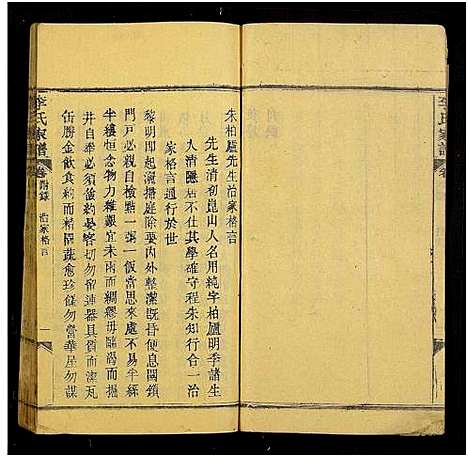 李氏家譜
卷
朱柏廬先生治家格言
先生清初崑山人名用純字柏廬明季諸生
入清隱居不仕其學確守程朱知行合一治
家格言通行於世
黎明即起灑掃庭除要內外整潔既昏便息關鎖
門戶必親自檢點一粥一飯當思來處不易半絲
半縷恒念物力維艱宜未雨而綢繆毋臨渴而掘
井自奉必須儉約宴客切勿留連器具質而潔瓦
缶勝金飲食約而精園蔬愈珍饈勿營華屋勿謀
李氏家譜
卷
附錄
治家格言
一